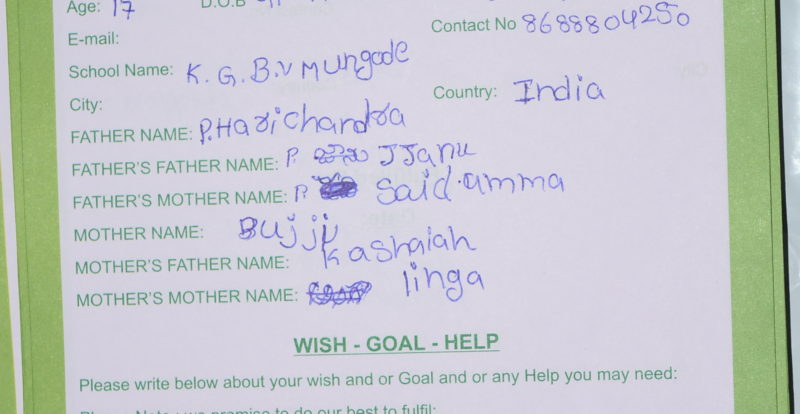 Age: 17 D.O.B
E-mail: Contact No 8688804250
School Name: K.G.B.V Mungode
City: Country: India
FATHER NAME: P.Harichandra
FATHER'S FATHER NAME: P. JJanu
FATHER'S MOTHER NAME: P. Said.amma
MOTHER NAME: Bujji
MOTHER'S FATHER NAME: Kashaiah
MOTHER'S MOTHER NAME: linga
WISH - GOAL - HELP
Please write below about your wish and or Goal and or any Help you may need:
Please Note : we promise to do our best to fulfil: